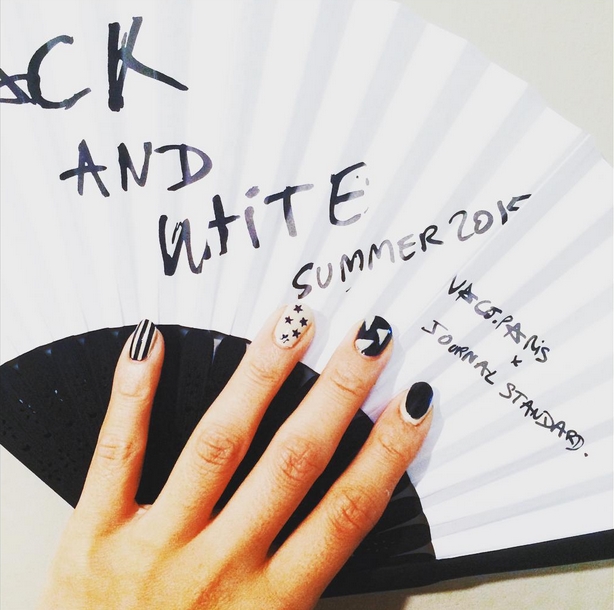 ACK
AND
WHiTE
SUMMER 2015
JOURNAL STANDARD.